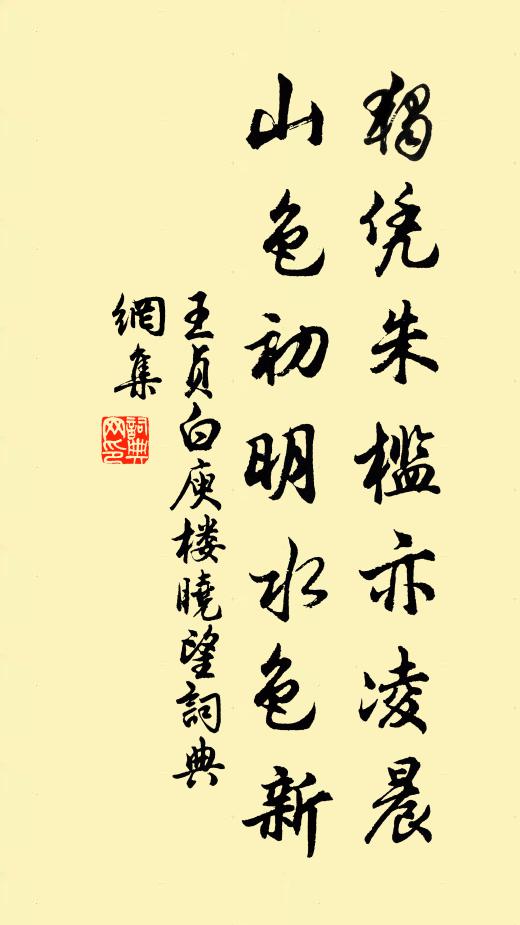 獨凭朱檻亦凌晨
山色初明水色新
王貞白庾楼曉望詞典
網集
詞典网印